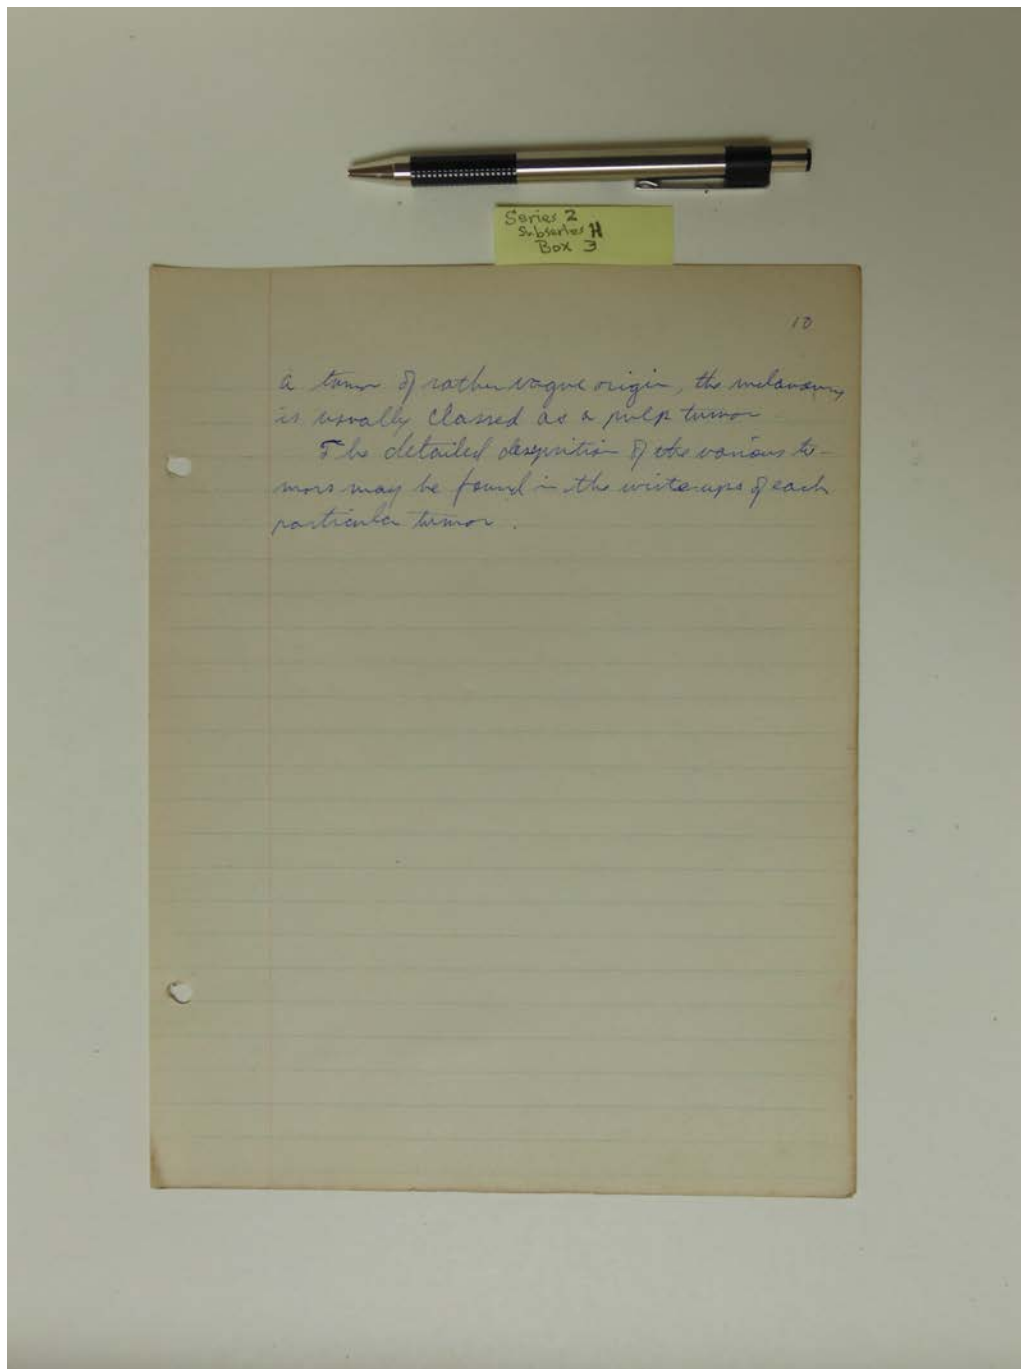 Series 2
Subseries H
Box 3
10
a tumor of rather vague origin, the
is usually classed as a pulp tumor
The detailed description of the various tu-
mors may be found in the write-ups of each
particular tumor.